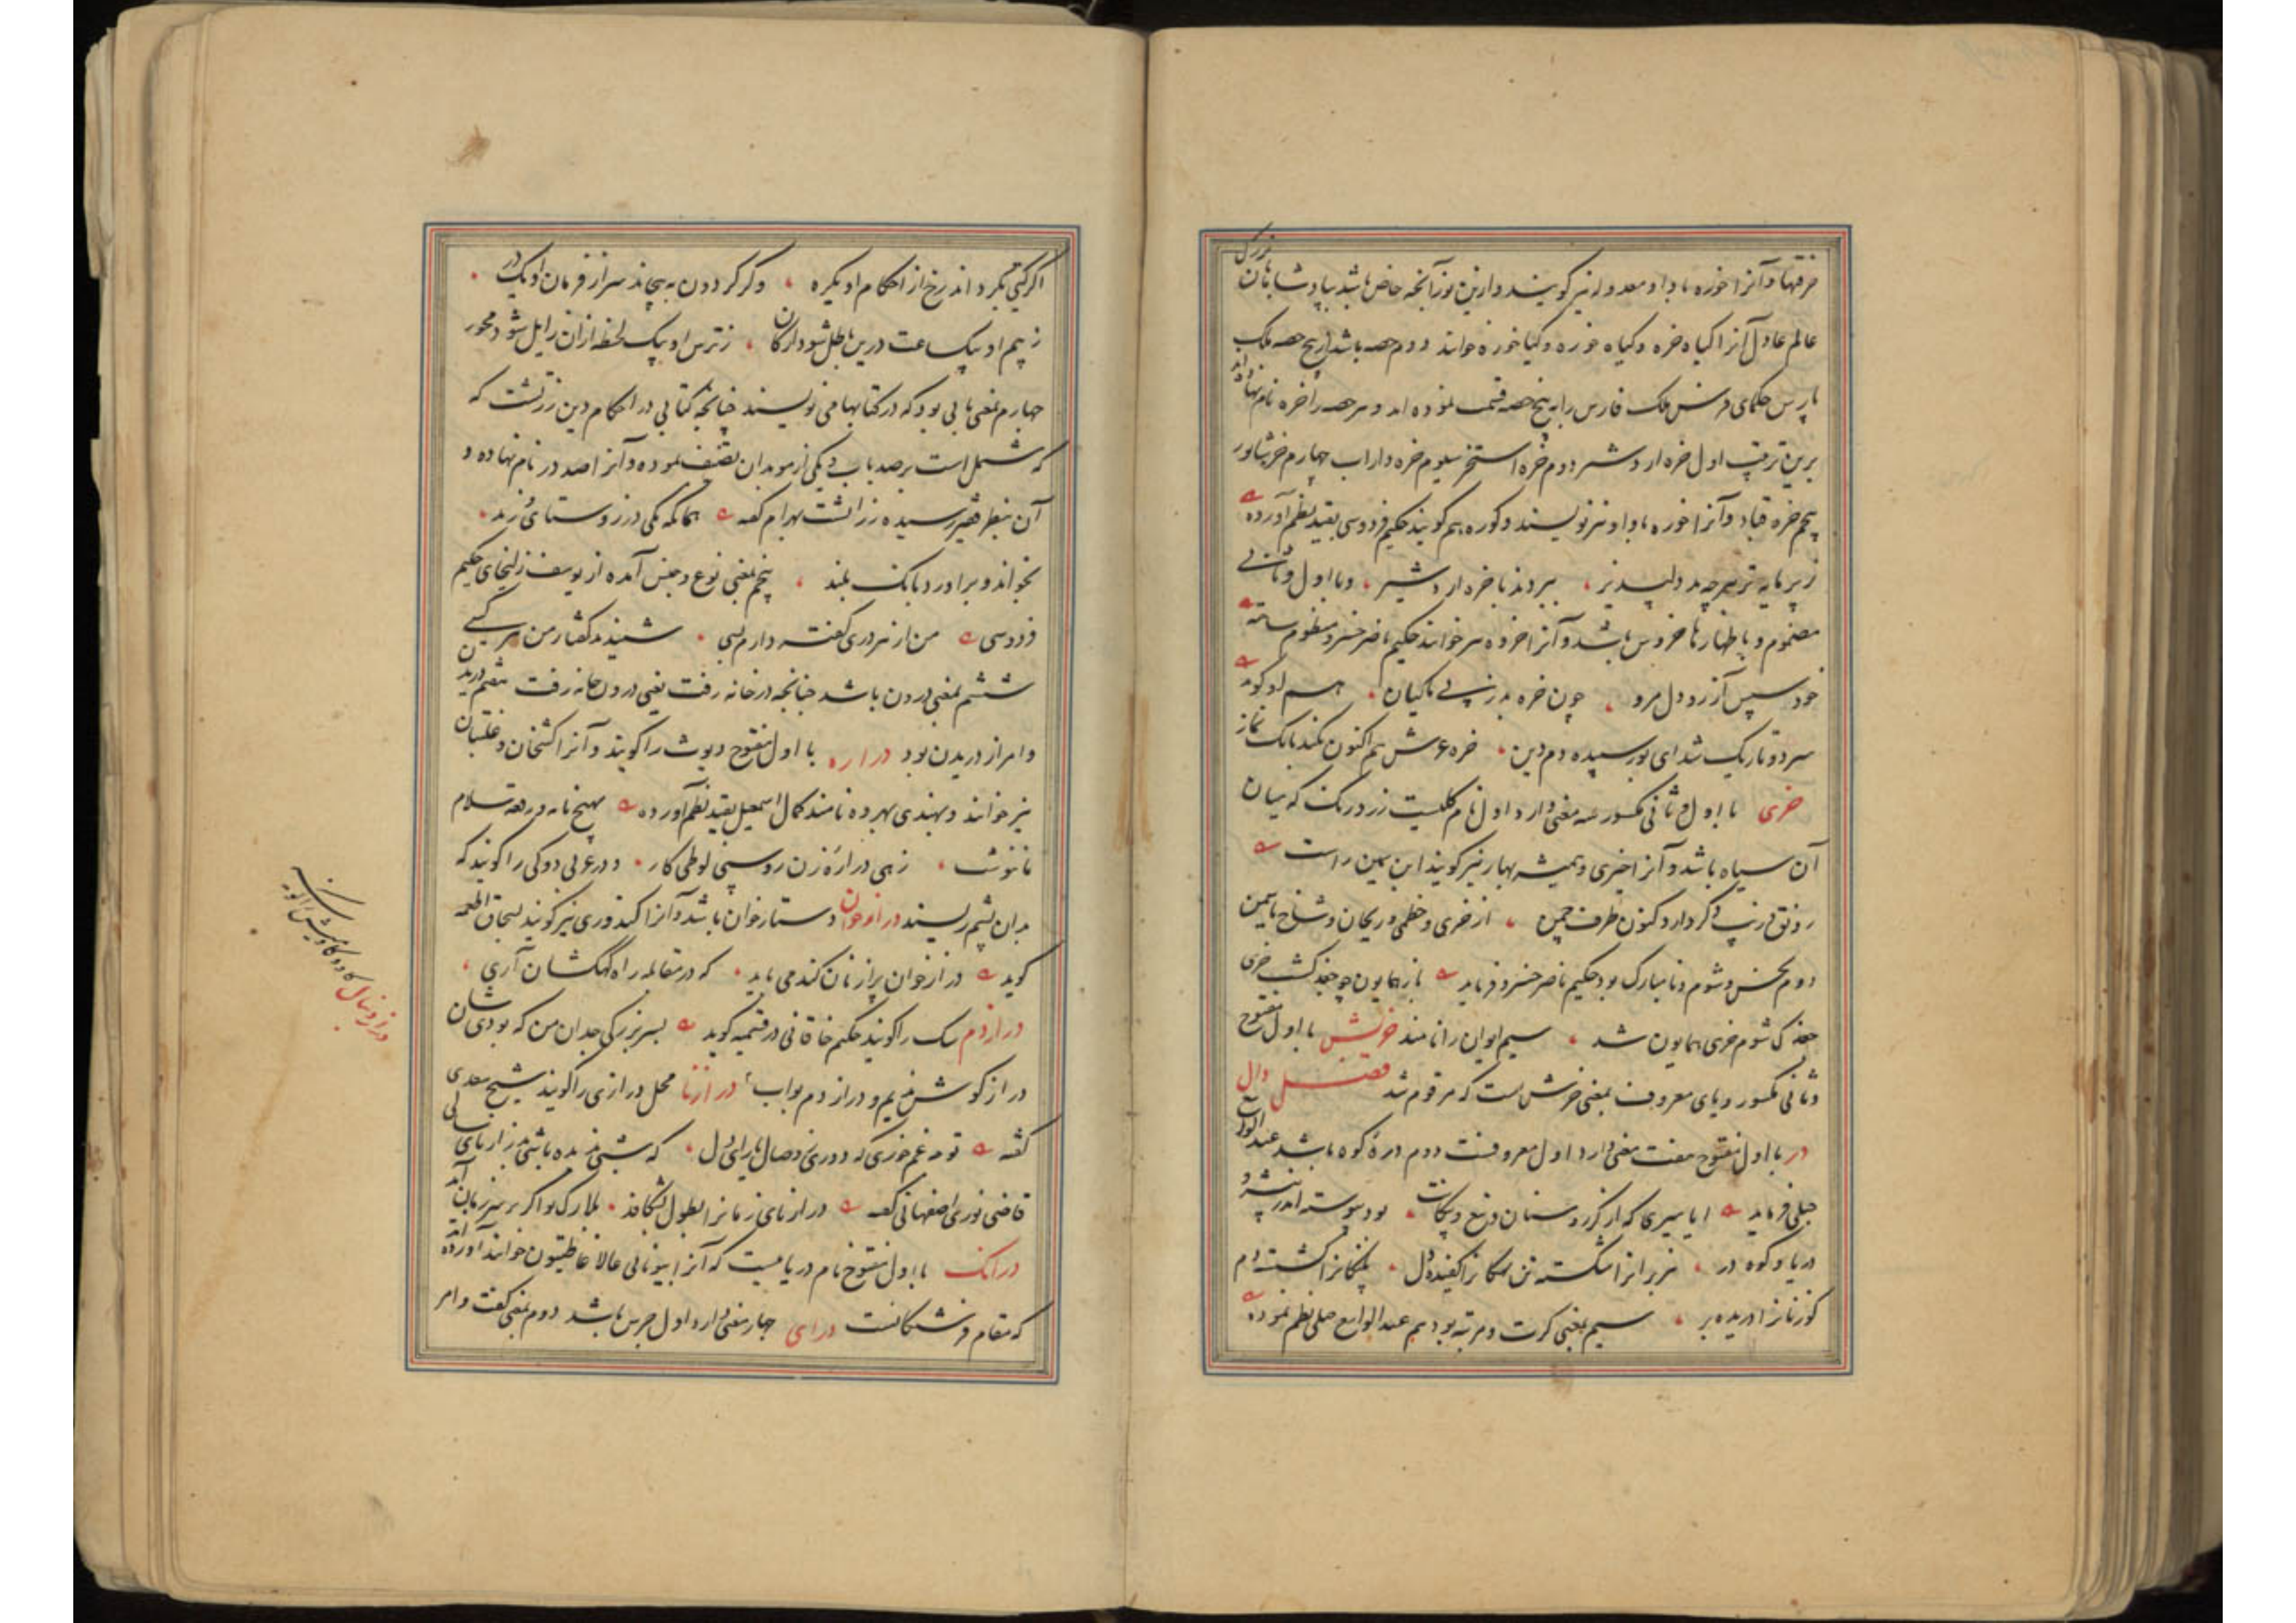 خرقها و آنرا خوره با واو معدوله نیز گویند و ازین نور آنچه خاص باشد بپادشاهان بزرگ
عالم عادل آنرا کیاه خره و کیاه خوره و کیا خوره خوانند دوم حصه باشد از پنج حصه ملک
پارس حکمای فرس ملک فارس را به پنج حصه قسمت نموده اند و هر حصه را خره نام نهاده اند
برین ترتیب اول خره اردشیر دوم خره استخر سیوم خره داراب چهارم خره شاپور
پنجم خره قباد و آنرا خوره با واو نیز نویسند و کوره هم گویند حکیم فردوسی بقید نظم آورده
پر مایه تر هر چه بد دلپذیر ببردند تا خره اردشیر و با اول و ثانی
مضموم و باظهار ها خروس باشد و آنرا خروه نیز خوانند حکیم ناصر خسرو منظوم ساخته
خود سپس آز رود دل مرو چون خره بد ز پی ماکیان هم او گوید
سرد و تاریک شد ای پور سپیده دم دین خره عرش هم اکنون بکند بانک نماز
خری با اول و ثانی مکسور سه معنی دارد اول نام گلیست زرد رنک که میان
آن سیاه باشد و آنرا خیری و همیشه بهار نیز گویند ابن یمین راست
رونق و زیب دگر دارد کنون طرف چمن از خری و خطمی و ریحان و شاخ یاسمین
دوم نحس و شوم و نامبارک بود حکیم ناصر خسرو فرماید باز همایون چو جغد کشت خری
جغدک شوم خری همایون شد سیم ایوان را نامند خریش با اول مفتوح
و ثانی مکسور و یای معروف بمعنی خرش است که مرقوم شد فصل دال
در با اول مفتوح هفت معنی دارد اول معروفست دوم دره کوه باشد عبد الواسع
جبلی فرماید ایا میری که از گرز و سنان و تیغ و پیکانت بود پیوسته اندر بیشه و
دریا و کوه و در هزبرانرا شکسته تن نهنکانرا کفیده دل پلنکانرا کشسته دم
گوزنانرا دریده بر سیم بمعنی کرت و مرتبه بود هم عبد الواسع جبلی نظم نموده
اگر گیتی بگرداند رخ از احکام او یکره وگر گردون بپیچاند سر از فرمان او یک در
ز بیم او بیک ساعت درین باطل شود ارکان ز ترس او بیک لحظه ازان زایل شود محور
چهارم بمعنی بابی بود که در کتابها می نویسند چنانچه کتابی در احکام دین زردشت که
که مشتمل است بر صد باب و یکی از موبدان تصنیف نموده و آنرا صد در نام نهاده و
آن بنظر فقیر رسیده زراتشت بهرام گفته
بخواند و برآورد بانک بلند پنجم بمعنی نوع و جنس آمده از یوسف زلیخای حکیم
فردوسی من از هر دری گفته دارم بسی شنیدند گفتار من هر کسی
ششم بمعنی درون باشد چنانچه در خانه رفت یعنی درون خانه رفت هفتم دریدن
و امر از دریدن بود دراره با اول مفتوح دیوث را گویند و آنرا کشخان و غلتبان
نیز خوانند و بهندی بهروه نامند کمال اسمعیل بقید نظم آورده
زهی درازه زن روسپی لوطی کار و در عربی دوکی را گویند که
بدان پشم ریسند درازخوان دستارخوان باشد و آنرا کندوری نیز گویند بسحاق اطعمه
گوید درازخوان پر از نان گندمی باید که در مقابله راه کهکشان آری
درازدم سک را گویند حکیم خاقانی در قسمیه گوید بسر بزرگی جدان من که بودی شان
دراز گوش ندیم و دراز دم بواب درازنا محل درازی را گویند شیخ سعدی
گفته تو چه غم خوری که دوری ز وصال ما را ای دل که شبی ندیده باشی بدرازنای سالی
قاضی نوری اصفهانی گفته درازنای زمانرا بطول بشکافد بلارک تو اگر بر سر زمان آید
درانک با اول مفتوح نام دریائیست که آنرا بیونانی خوانند آورده اند
که مقام فرشتگانست درای چهار معنی دارد اول جرس باشد دوم بمعنی گفت و امر
دراز دنبال گاو و گاومیش را گویند